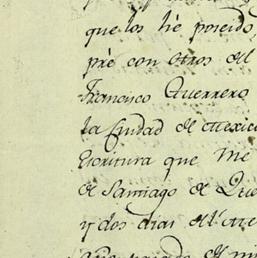 que los hé poseido,
pré con otros del
Francisco Guerrero
la Ciudad de Mexico
Escritura que me
de Santiago de Que
y dos dias del Me
Año pasado de mi